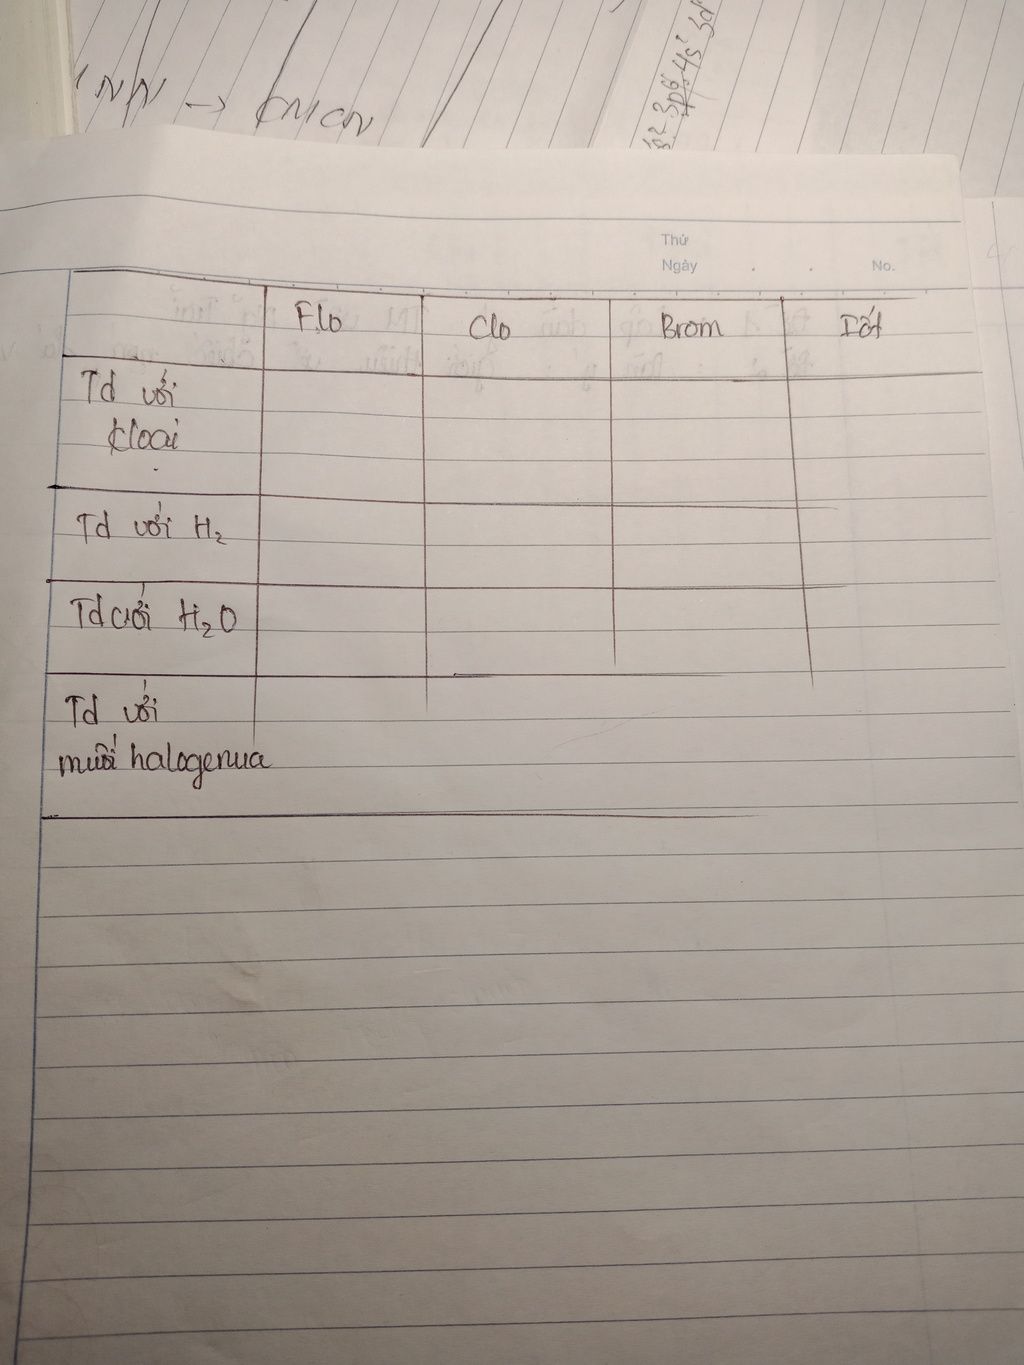 NN → CNCN
3p⁶ 4s² 3d
Thứ
Ngày . . No.
Flo Clo Brom Iốt
Td với
kloai
Td với H₂
Td với H₂O
Td với
muối halogenua